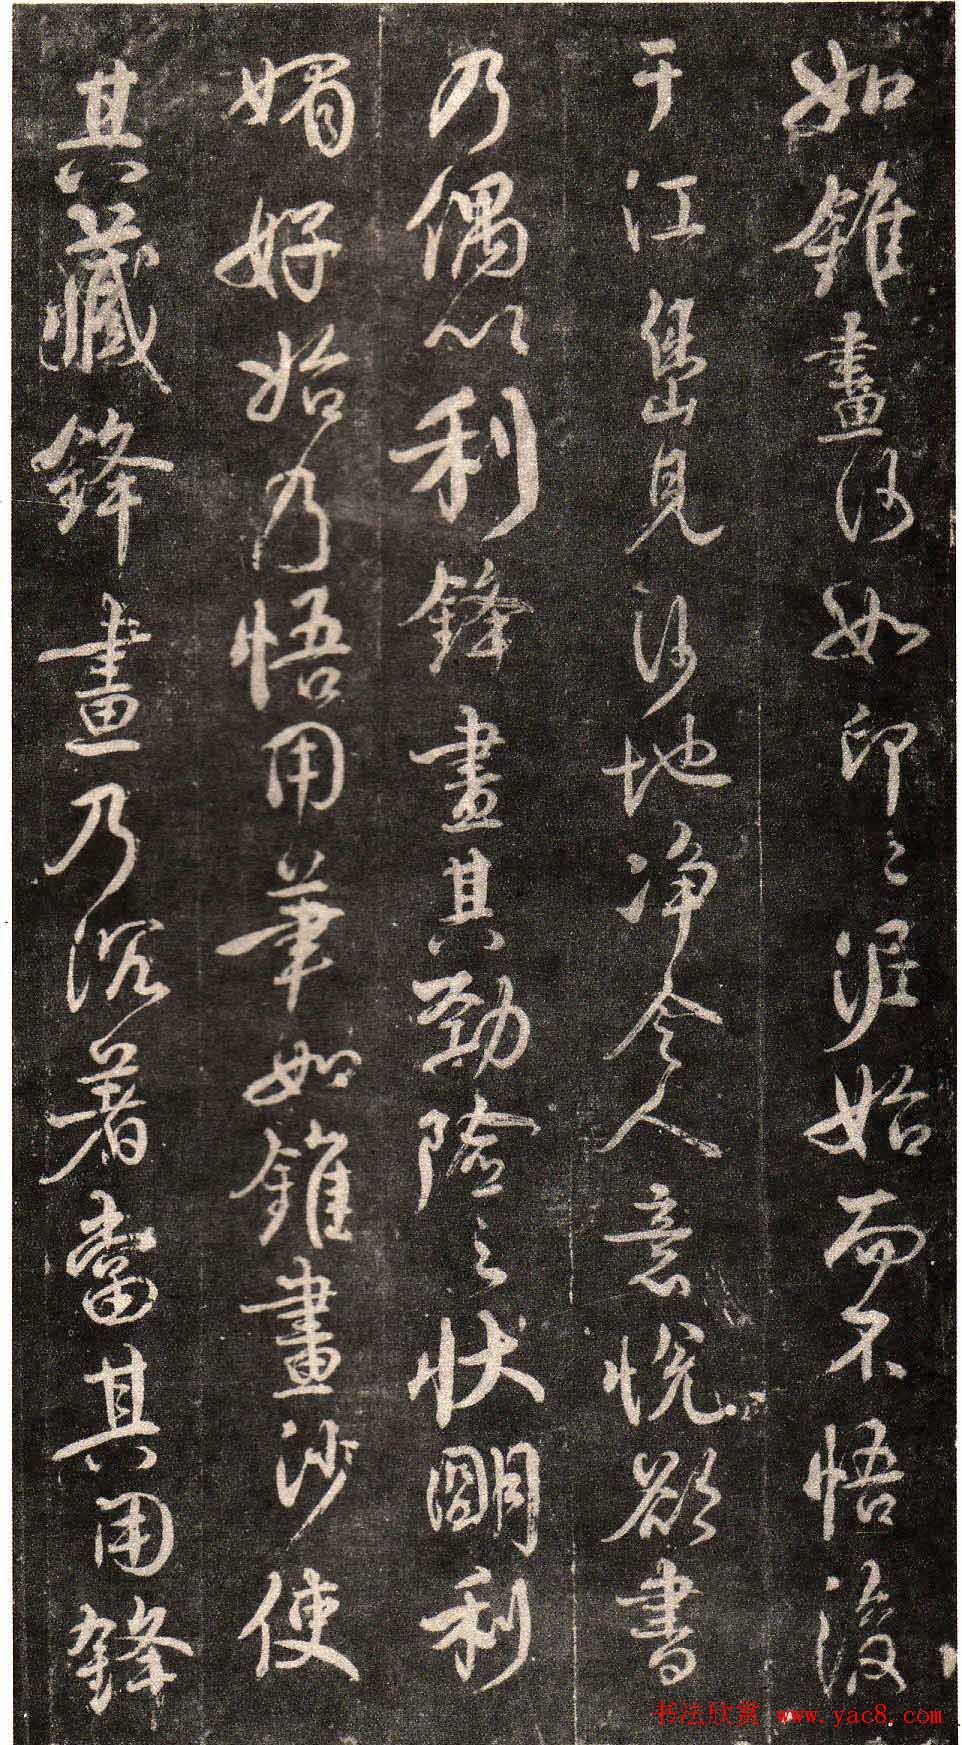 如錐畫沙如印之泥始而不悟後
于江島見沙地净令人意悦欲書
乃偶以利鋒畫其勁險之状明利
媚好始乃悟用筆如錐畫沙使
其藏鋒畫乃沉著當其用鋒
书法欣赏 www.yac8.com